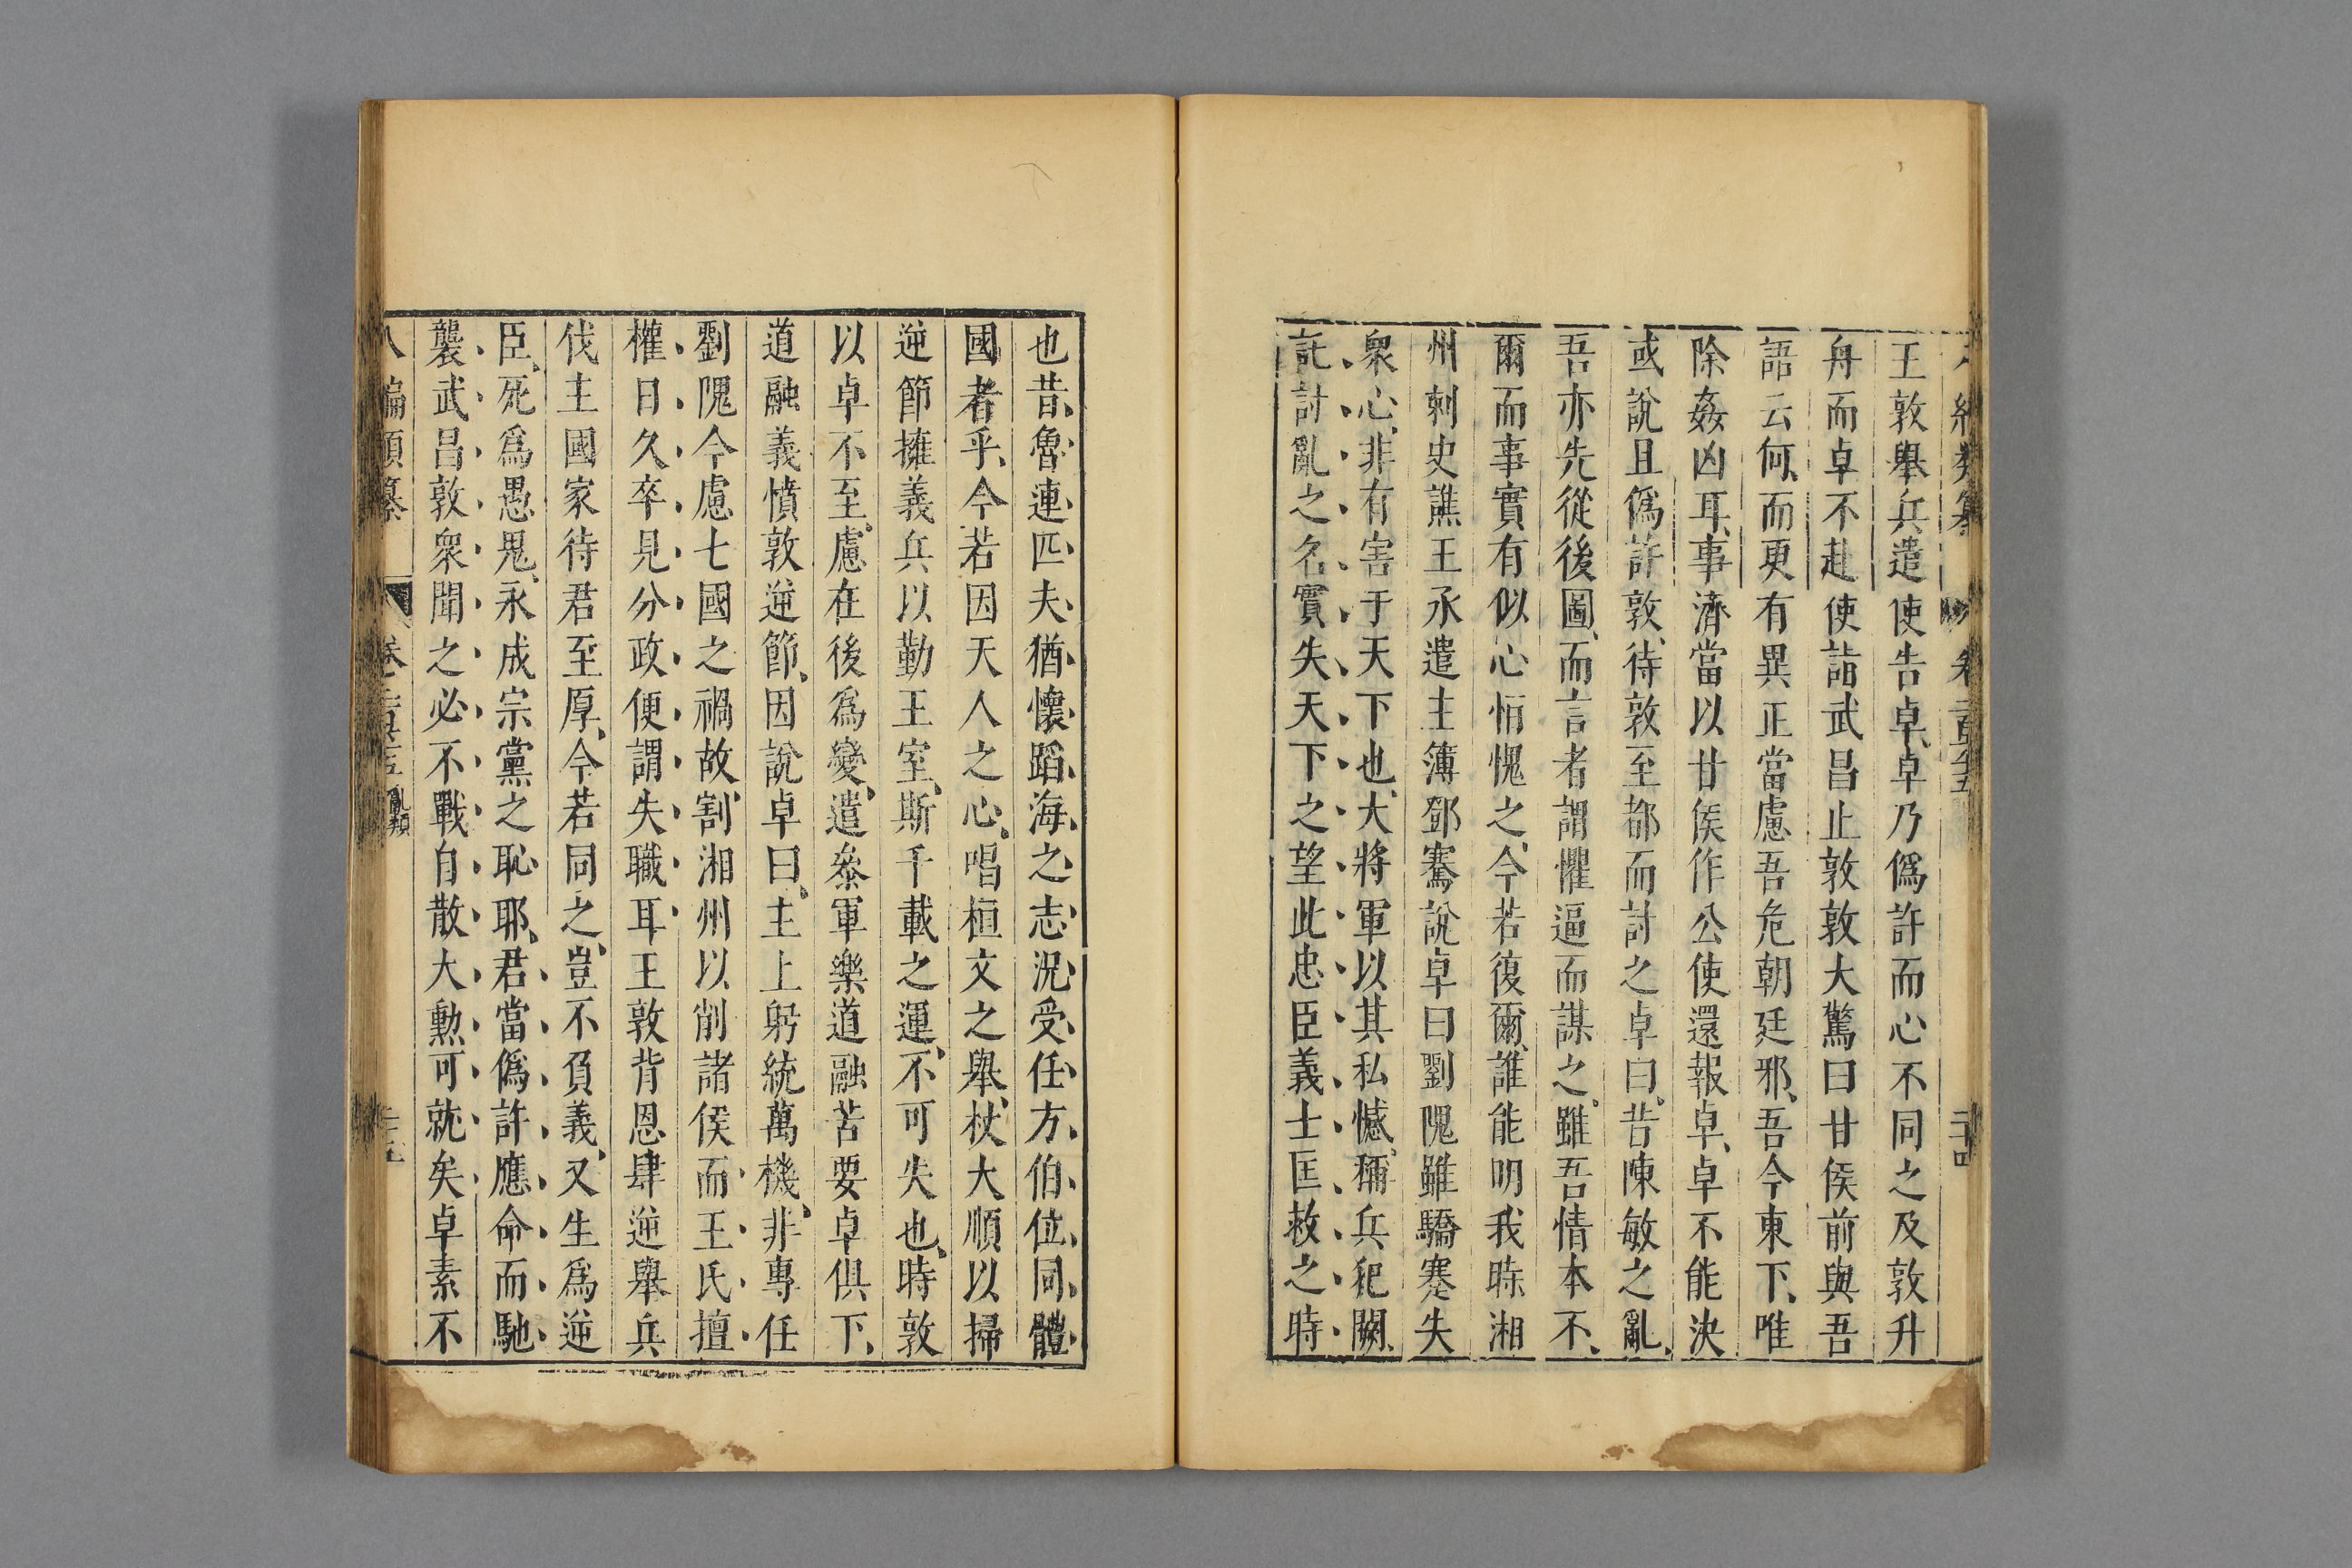 王敦舉兵遣使告卓卓乃僞許而心不同之及敦升
舟而卓不赴使詣武昌止敦敦大驚曰甘侯前與吾
語云何而更有異正當慮吾危朝廷邪吾今東下唯
除姦凶耳事濟當以甘侯作公使還報卓卓不能決
或說且僞許敦待敦至都而討之卓曰昔陳敏之亂
吾亦先從後圖而言者謂懼逼而謀之雖吾情本不
爾而事實有似心恒愧之今若復爾誰能明我時湘
州刺史譙王永遣主簿鄧騫說卓曰劉隗雖驕蹇失
衆心非有害于天下也大將軍以其私憾稱兵犯闕
託討亂之名實失天下之望此忠臣義士匡救之時
也昔魯連匹夫猶懷蹈海之志況受任方伯位同體
國者乎今若因天人之心唱桓文之舉杖大順以掃
逆節擁義兵以勤王室斯千載之運不可失也時敦
以卓不至慮在後爲變遣叅軍樂道融苦要卓俱下
道融義憤敦逆節因說卓曰主上躬統萬機非專任
劉隗今慮七國之禍故割湘州以削諸侯而王氏擅
權日久卒見分政便謂失職耳王敦背恩肆逆舉兵
伐主國家待君至厚今若同之豈不負義又生爲逆
臣死爲愚鬼永成宗黨之恥耶君當僞許應命而馳
襲武昌敦衆聞之必不戰自散大勲可就矣卓素不